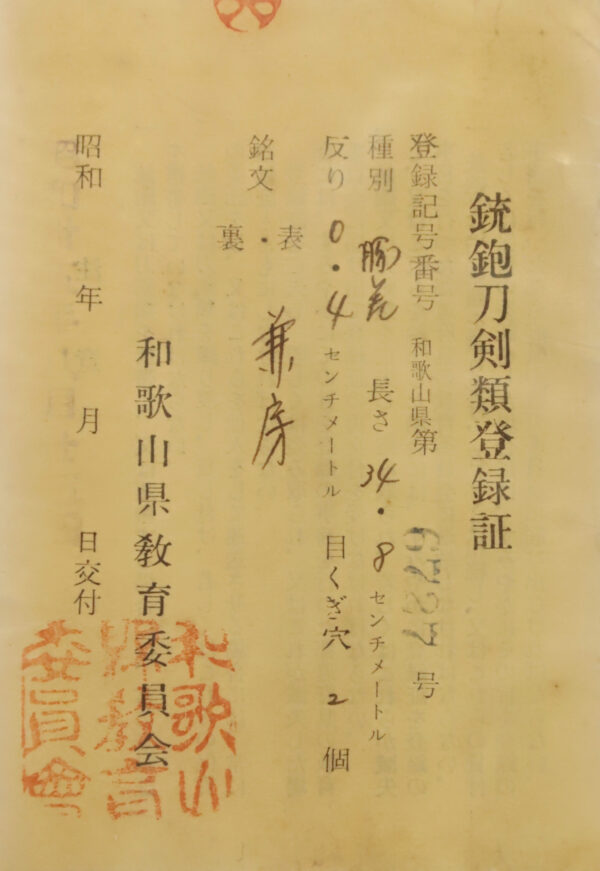 銃鉋刀剣類登録証
登録記号番号 和歌山県第 号
種別 脇差 長さ 34.8 センチメートル
反り 0.4 センチメートル 目くぎ穴 2 個
銘文 ・ 表 兼房
裏
和歌山県教育委員会
昭和 年 月 日交付
和歌山
県教育
委員會